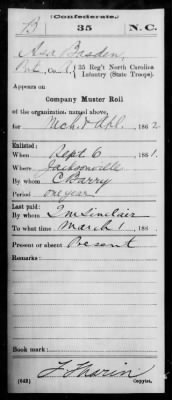 (Confederate.)
B 35 N.C.
Asa Basden
Pvt, Co. A, 35 Reg't North Carolina
Infantry (State Troops).
Appears on
Company Muster Roll
of the organization named above,
for Mch & Apl., 1862.
Enlisted:
When Sept 6, 1861.
Where Jacksonville
By whom C Barry
Period one year
Last paid:
By whom J M Sinclair
To what time March 1, 186 .
Present or absent Present
Remarks:
Book mark:
(642) Copyist.